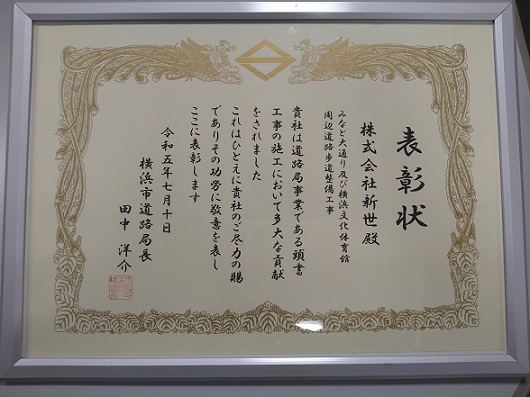 表彰状
株式会社新世殿
みなと大通り及び横浜文化体育館
周辺道路歩道整備工事
貴社は道路局事業である頭書
工事の施工において多大な貢献
をされました
これはひとえに貴社のご尽力の賜
でありその功労に敬意を表し
ここに表彰します
令和五年七月十日
横浜市道路局長
田中洋介